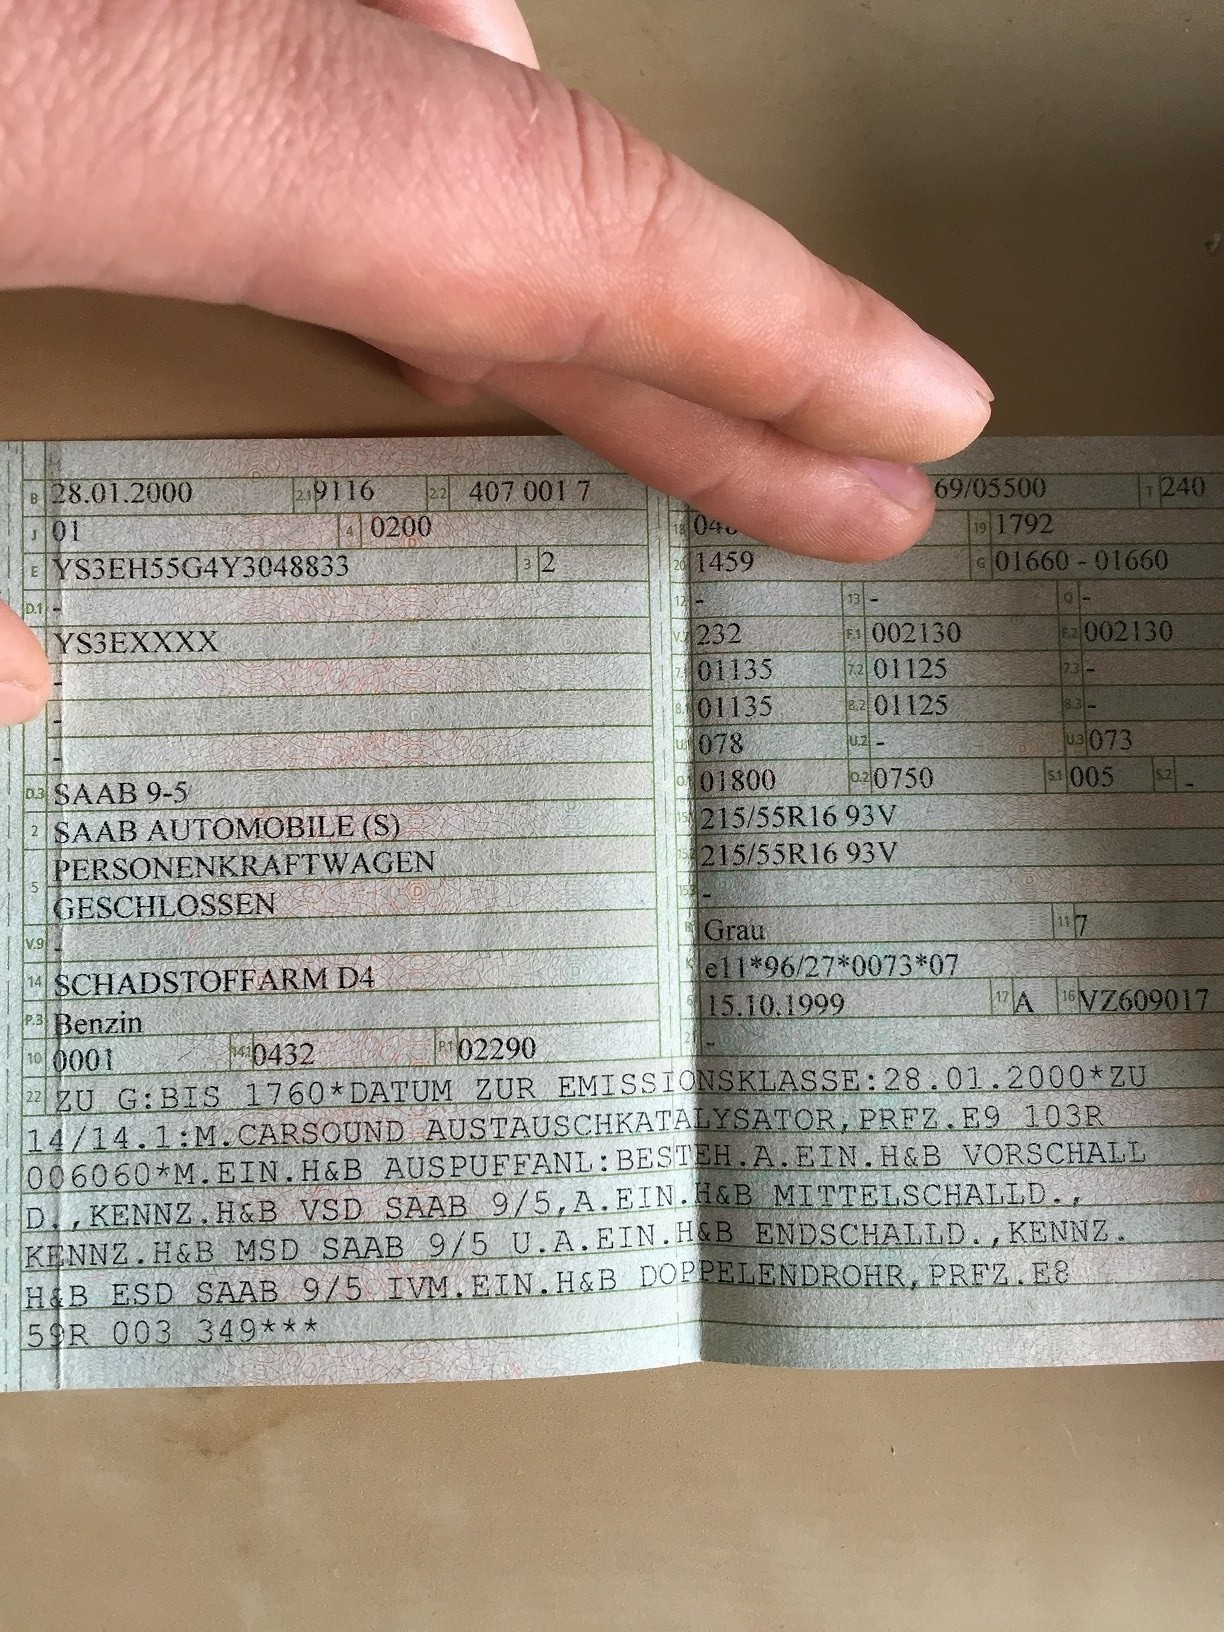 B 28.01.2000 2.1 9116 2.2 407 001 7
J 01 4 0200
E YS3EH55G4Y3048833 3 2
D.1 -
YS3EXXXX
-
-
-
D.3 SAAB 9-5
2 SAAB AUTOMOBILE (S)
5 PERSONENKRAFTWAGEN
GESCHLOSSEN
V.9 -
14 SCHADSTOFFARM D4
P.3 Benzin
10 0001 14.1 0432 P.1 02290
69/05500 T 240
18 19 1792
20 1459 G 01660 - 01660
12 - 13 - Q -
V.7 232 F.1 002130 F.2 002130
7.1 01135 7.2 01125 7.3 -
8.1 01135 8.2 01125 8.3 -
U.1 078 U.2 - U.3 073
O.1 01800 O.2 0750 S.1 005 S.2 -
15.1 215/55R16 93V
15.2 215/55R16 93V
15.3 -
R Grau 11 7
K e11*96/27*0073*07
6 15.10.1999 17 A 16 VZ609017
21 -
22 ZU G:BIS 1760*DATUM ZUR EMISSIONSKLASSE:28.01.2000*ZU
14/14.1:M.CARSOUND AUSTAUSCHKATALYSATOR,PRFZ.E9 103R
006060*M.EIN.H&B AUSPUFFANL:BESTEH.A.EIN.H&B VORSCHALL
D.,KENNZ.H&B VSD SAAB 9/5,A.EIN.H&B MITTELSCHALLD.,
KENNZ.H&B MSD SAAB 9/5 U.A.EIN.H&B ENDSCHALLD.,KENNZ.
H&B ESD SAAB 9/5 IVM.EIN.H&B DOPPELENDROHR,PRFZ.E8
59R 003 349***